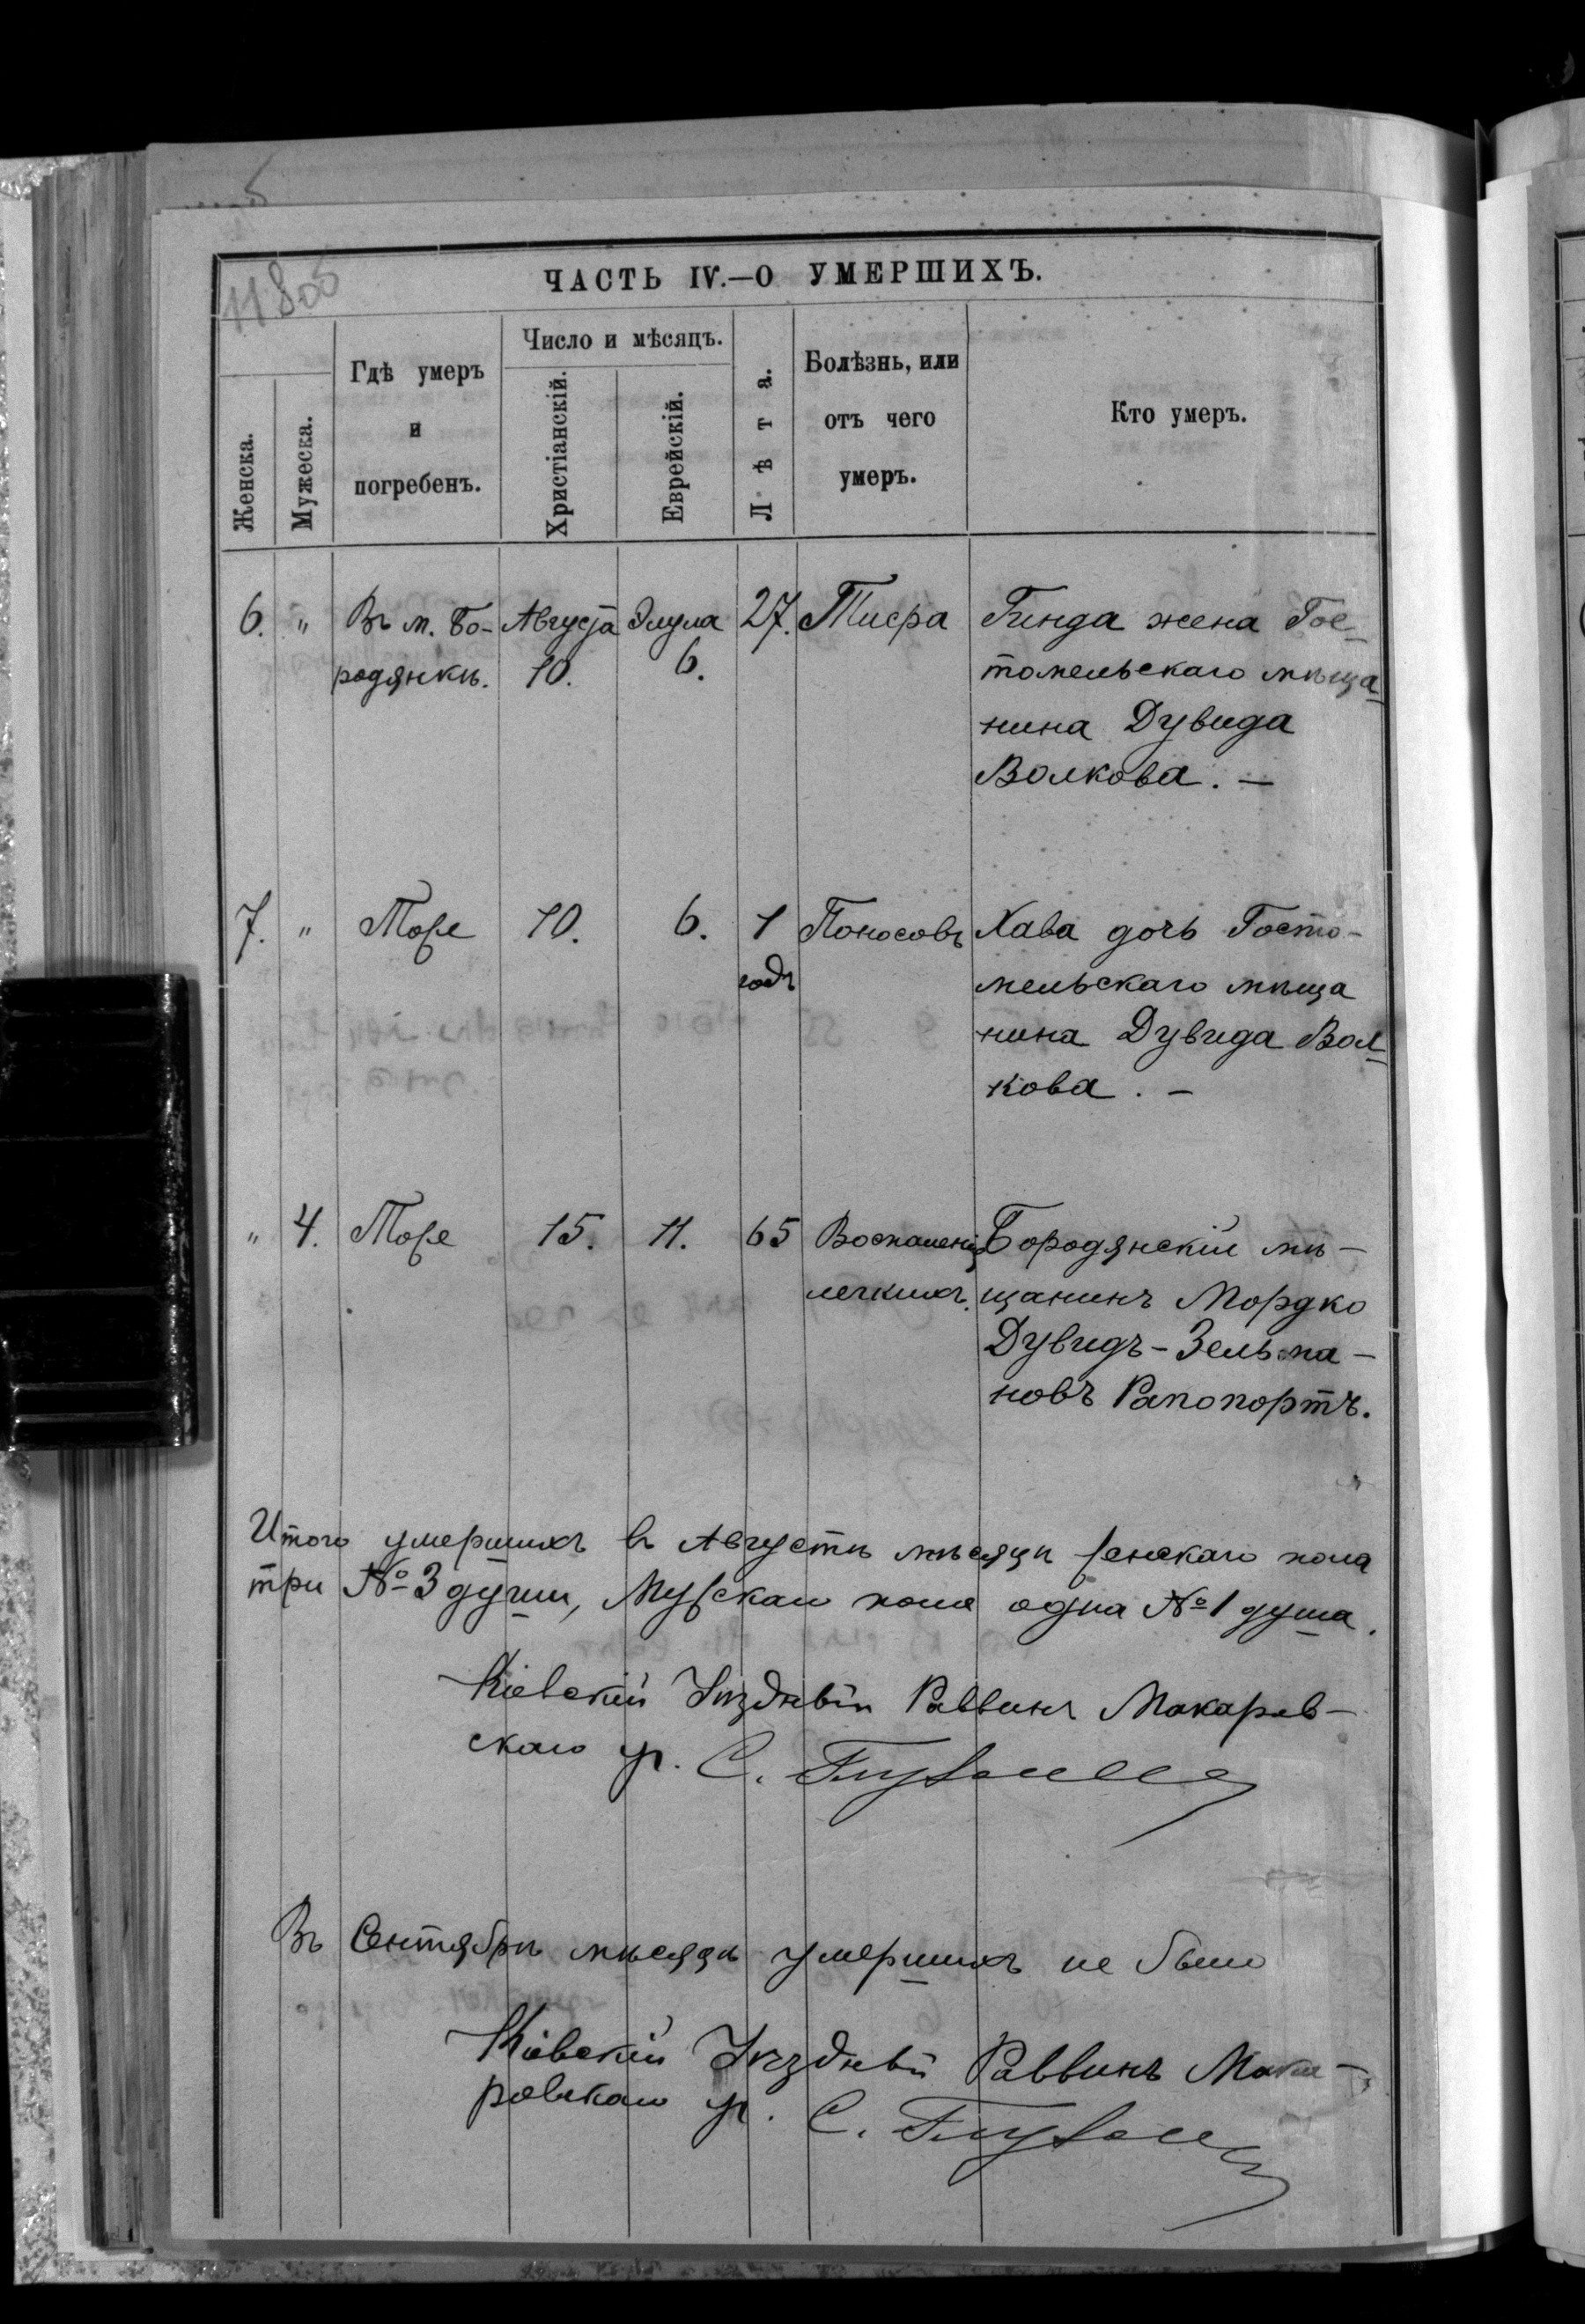 11800
ЧАСТЬ IV.—О УМЕРШИХЪ.
Женска.
Мужеска.
Гдѣ умеръ
и
погребенъ.
Число и мѣсяцъ.
Христіанскій.
Еврейскій.
Лѣта.
Болѣзнь, или
отъ чего
умеръ.
Кто умеръ.
6. " Въ м. Бо- Августа Элула 27. Тифа Гинда жена Гос-
родянкѣ. 10. 6. томельскаго мѣща
нина Дувида
Волкова. —
7. " Тоже 10. 6. 1 Поносовъ Хава дочь Госто-
годъ мельскаго мѣща
нина Дувида Вол-
кова. —
" 4. Тоже 15. 11. 65 Воспаленія Бородянскій мѣ-
легкихъ. щанинъ Мордко
Дувидъ-Зельма-
новъ Рапопортъ.
Итого умершихъ въ Августѣ мѣсяцѣ женскаго пола
три № 3 души, Мужскаго пола одна № 1 душа.
Кіевскій Уѣздный Раввинъ Макаров-
скаго уч. С.
Въ Сентябрѣ мѣсяцѣ умершихъ не было
Кіевскій Уѣздный Раввинъ Мака-
ровскаго уч. С.